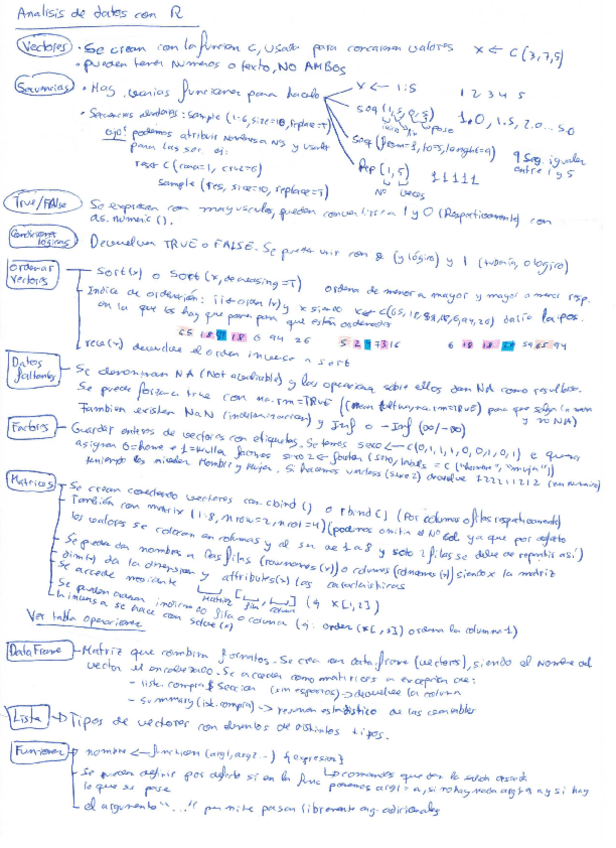 Analisis de datos con R
Vectores · Se crean con la funcion c, usada para concatenar valores x <- c(3,7,5)
· pueden tener numeros o texto, NO AMBOS
Secuencias · Hay varias funciones para hacerlo x <- 1:5 1 2 3 4 5
seq(1,5,0.5) 1.0, 1.5, 2.0... 5.0
paso
· Secuencias aleatorias: sample(1:6, size=10, replace=T)
seq(from=1, to=5, lenght=9) 9 seg. iguales entre 1 y 5
ojo! podemos atribuir nombres a Nºs y usarlos
para las sec. ej:
res c(cara=1, cruz=0)
rep(1,5) 1 1 1 1 1
Nº veces
sample(res, size=10, replace=T)
True/FAlse Se expresan con mayusculas, pueden convertirse a 1 y 0 (Respectivamente) con
as.numeric().
Condiciones lógicas Devuelven TRUE o FALSE. Se pueden unir con & (y lógico) y | (o lógico)
Ordenar vectores - sort(x) o sort(x, decreasing=T) ordena de menor a mayor y mayor a menor resp.
- Indice de ordenación: order(x) y x siendo x<-c( dará la pos.
en la que los hay que poner para que estén ordenados
65 18 18 6 94 26 5 2 3 7 6 18 18 65 94
rev(x) devuelve el orden inverso a sort
Datos faltantes - Se denominan NA (Not available) y las operaciones sobre ellos dan NA como resultado.
Se puede forzar a true con na.rm=TRUE para que salga la suma
y no NA)
Tambien existen NaN (indeterminacion) y Inf o -Inf (∞/-∞)
Factores - Guardar enteros de vectores con etiquetas. Si tenemos sexo <- c(0,1,1,1,0,0,1,0,1) e
asignar 0=hombre e 1=mujer hacemos sexo2 <- factor(sexo, labels = c("hombre", "mujer"))
teniendo los niveles hombre y mujer. Si hacemos unclass(sexo2) devuelve 122211212 (en numerico)
Matrices - Se crean conectando vectores con cbind() o rbind() (Por columnas o filas respectivamente)
- También con matrix(1:8, nrow=2, ncol=4) (podemos omitir el nº col ya que por defecto
los valores se colocan en columnas y al ser de 1 a 8 y solo 2 filas se debe de repartir así)
- Se pueden dar nombres a las filas (rownames(x)) o columnas (colnames(x)) siendo x la matriz
- dim(x) da la dimension y attributes(x) las caracteristicas
- Se accede mediante [ , ] (ej X[1,2])
matriz fila columna
- Se pueden ordenar indicando fila o columna (ej: order(x[,1]) ordena la columna 1)
- La inversa se hace con solve(x)
Ver tabla operaciones
Data Frame - Matriz que combina formatos. Se crea con data.frame(vectores), siendo el nombre del
vector el encabezado. Se accede como matrices a excepcion de:
- list.compra$Seccion (sin espacios) -> devuelve la columna
- Summary(list.compra) -> resumen estadistico de las variables
Lista -> Tipos de vectores con elementos de distintos tipos.
Funciones nombre <- function(arg1, arg2...) {expresion}
comandos que dan la salida
- Se pueden definir por defecto si en la func ponemos arg1=a, si no hay nada arg1 a y si hay
lo que se pase
- el argumento "..." permite pasar libremente arg. adicionales